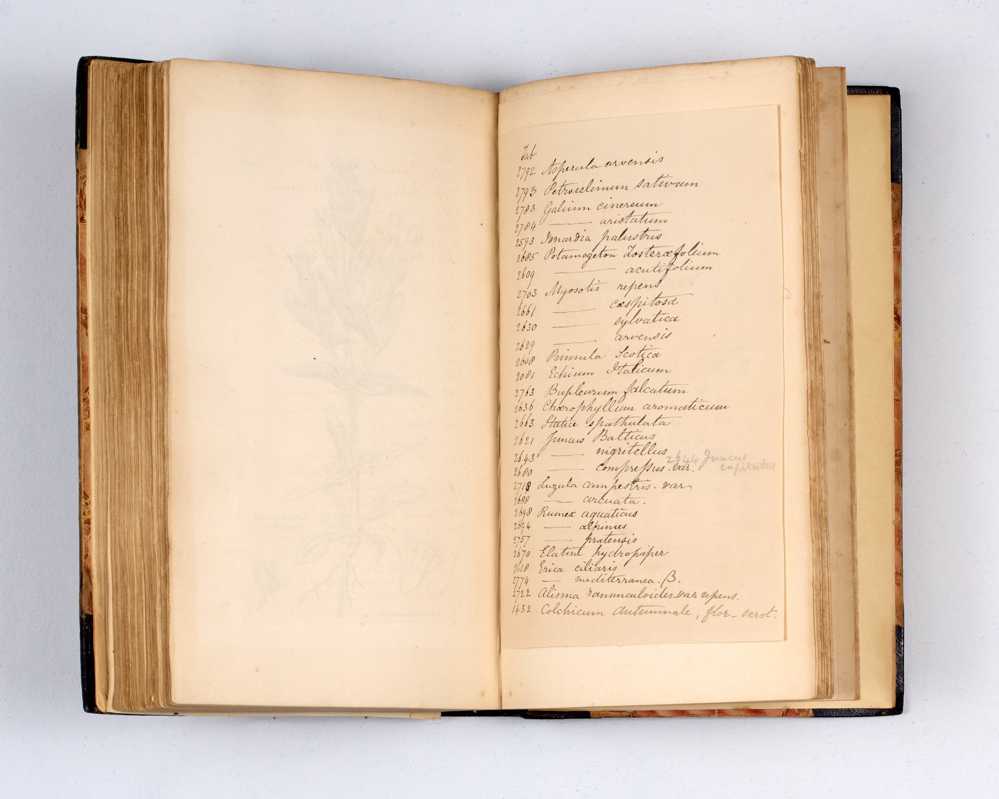 Tab
2792 Asperula arvensis
2793 Petroselinum sativum
2783 Galium cinereum
2784 —— aristatum
2593 Isnardia palustris
2685 Potamogeton Zosteræfolium
2609 —— acutifolium
2703 Myosotis repens
2661 —— cæspitosa
2630 —— sylvatica
2629 —— arvensis
2608 Primula Scotica
2081 Echium Italicum
2763 Bupleurum falcatum
2636 Chærophyllum aromaticum
2663 Statice spathulata
2621 Juncus Balticus
2643 —— nigritellus
2680 —— compressus. var.
2644 Juncus capitatus
2718 Luzula campestris. var.
2688 —— arcuata.
2698 Rumex aquaticus
2694 —— alpinus
2757 —— pratensis
2670 Elatine hydropiper
2618 Erica ciliaris
2774 — mediterranea. β.
2722 Alisma ranunculoides. var repens.
1432 Colchicum Autumnale, flor- serot.